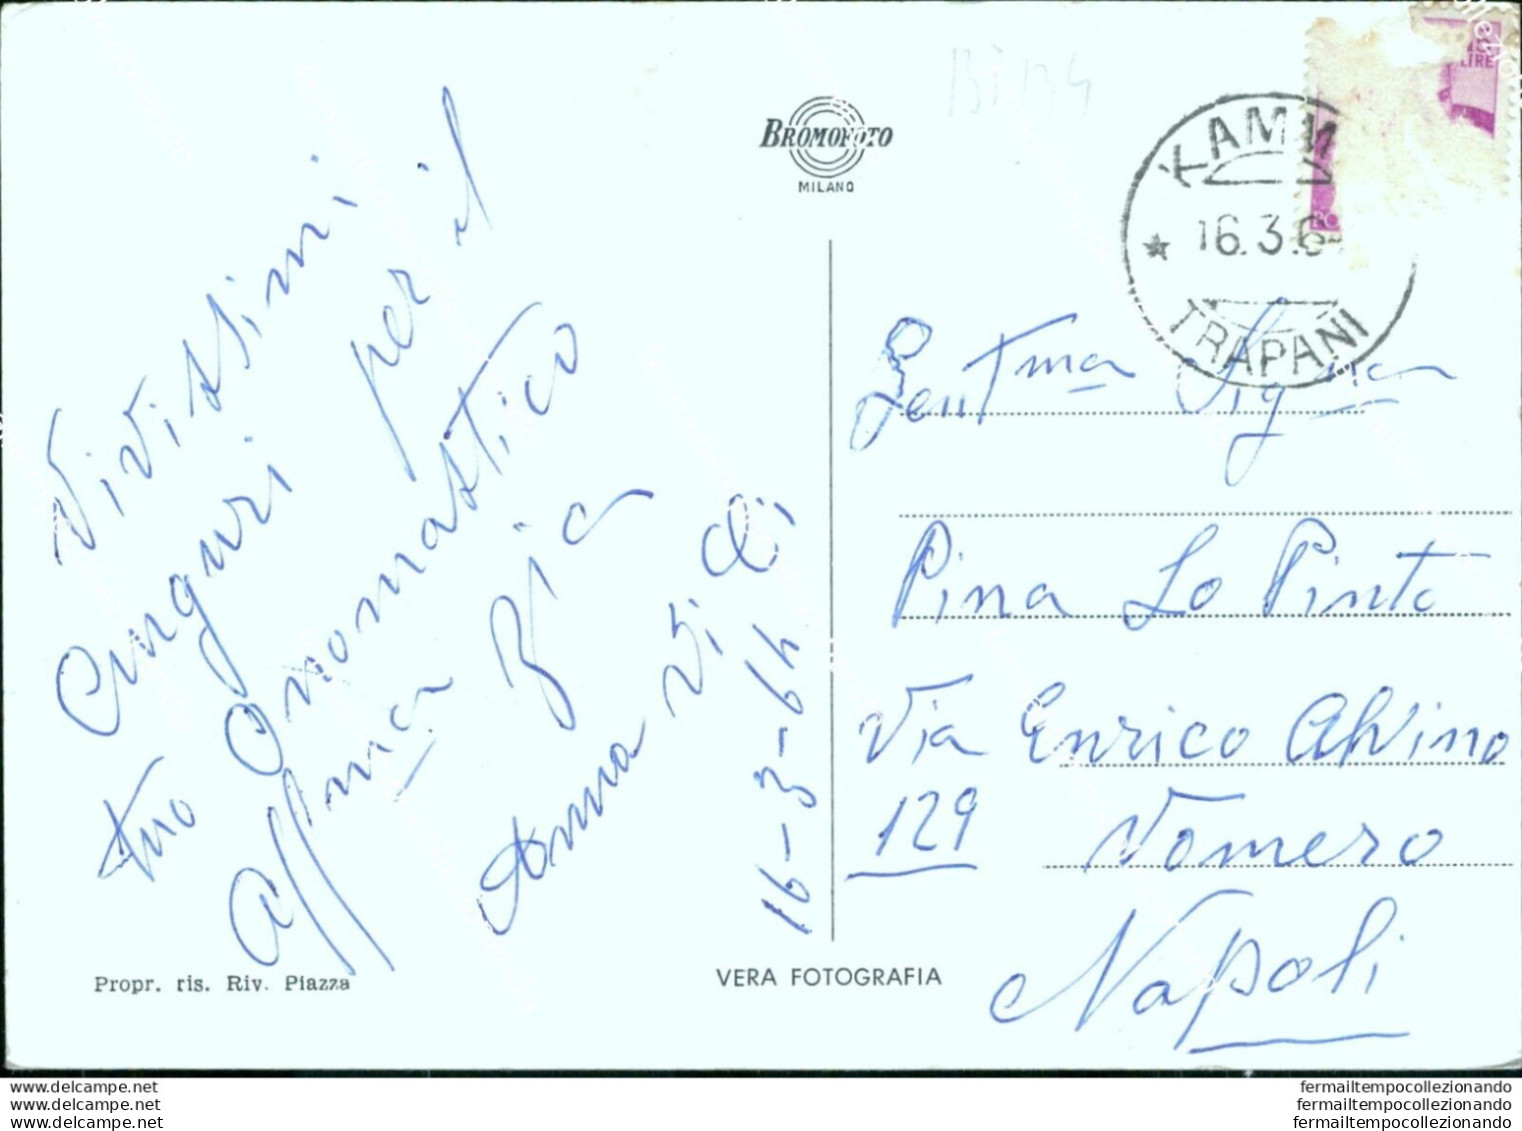 BI 134
BROMOFOTO
MILANO
15
LIRE
KAMM
16.3.64
TRAPANI
Vivissimi
auguri per il
tuo Onomastico
Aff.ma Zia
Anna Vi di
16-3-64
Gent.ma Sig.na
Pina Lo Pinto
Via Enrico Alvino
129 Vomero
Napoli
Propr. ris. Riv. Piazza
VERA FOTOGRAFIA
www.delcampe.net
www.delcampe.net
www.delcampe.net
fermailtempocollezionando
fermailtempocollezionando
fermailtempocollezionando